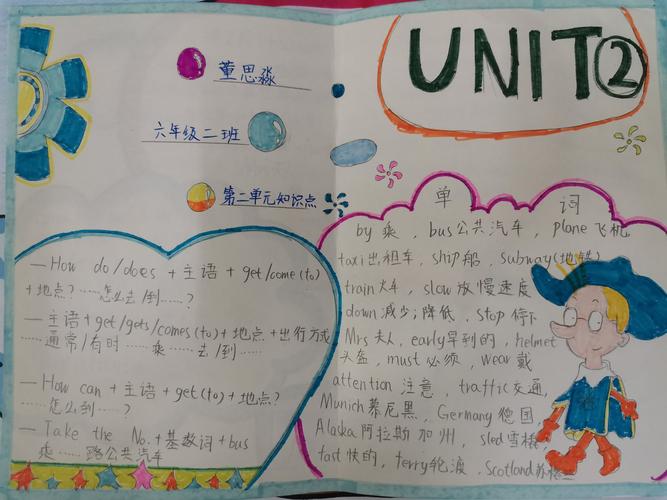 董思淼
六年级二班
第二单元知识点
— How do/does + 主语 + get/come (to)
+ 地点? ……怎么去/到……?
— 主语 + get/gets/comes (to) + 地点 + 出行方式
……通常/有时……乘……去/到……
— How can + 主语 + get (to) + 地点?
……怎么到……?
— Take the No. + 基数词 + bus
乘……路公共汽车
UNIT②
单 词
by 乘 , bus 公共汽车 , plane 飞机
taxi 出租车 , ship 船 , subway (地铁)
train 火车 , slow 放慢速度
down 减少;降低 , stop 停下
Mrs 夫人 , early 早到的 , helmet
头盔 , must 必须 , wear 戴
attention 注意 , traffic 交通 ,
Munich 慕尼黑 , Germany 德国 ,
Alaska 阿拉斯加州 , sled 雪橇 ,
fast 快的 , ferry 轮渡 , Scotland 苏格兰